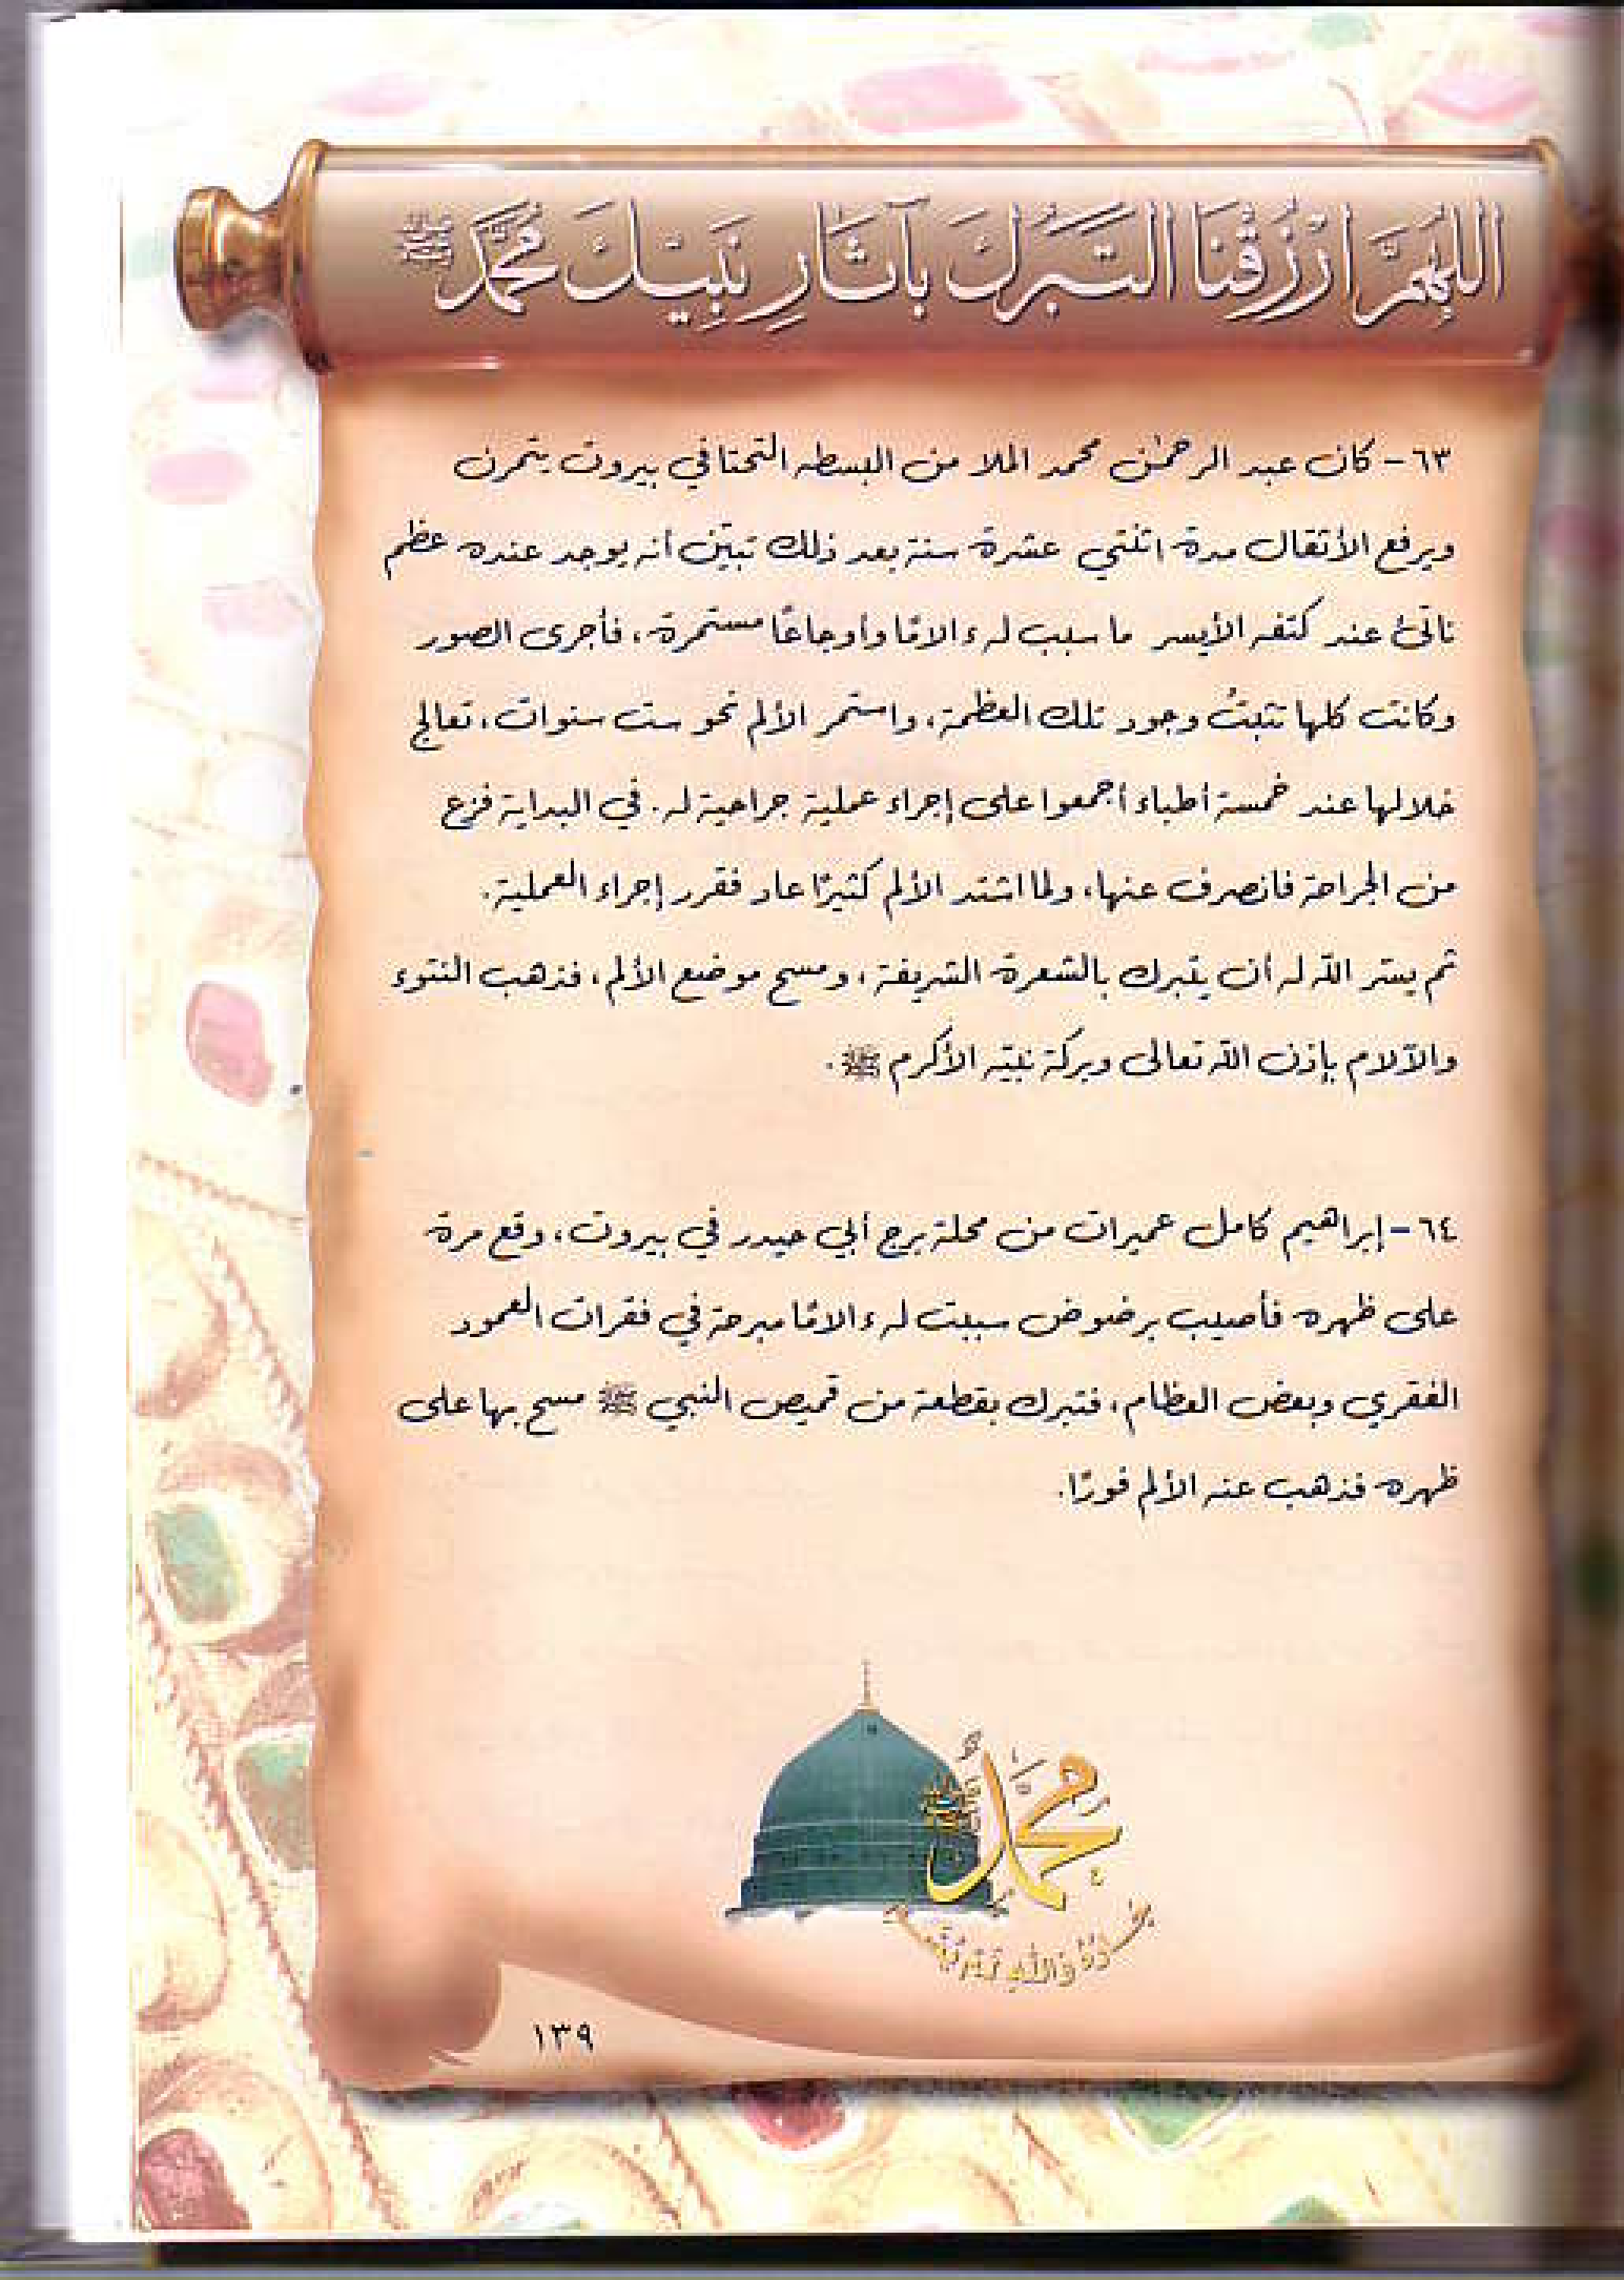 اللَّهُمَّ ارْزُقْنَا التَّبَرُّكَ بِآثَارِ نَبِيِّكَ مُحَمَّدٍ ﷺ
٦٣- كان عبد الرحمٰن محمد الملا من البسطه التحتا في بيروت يتمرن
ويرفع الأثقال مدة اثنتي عشرة سنة بعد ذلك تبيّن أنه يوجد عنده عظم
ناتئ عند كتفه الأيسر ما سبب له ءالامًا وأوجاعًا مستمرة، فأجرى الصور
وكانت كلها تثبتُ وجود تلك العظمة، واستمر الألم نحو ست سنوات، تعالج
خلالها عند خمسة أطباء أجمعوا على إجراء عملية جراحية له. في البداية فزع
من الجراحة فانصرف عنها، ولما اشتد الألم كثيرًا عاد فقرر إجراء العملية.
ثم يسّر الله له أن يتبرك بالشعرة الشريفة، ومسح موضع الألم، فذهب النتوء
والآلام بإذن الله تعالى وبركة نبيّه الأكرم ﷺ.
٦٤- إبراهيم كامل عميرات من محلة برج أبي حيدر في بيروت، وقع مرة
على ظهره فأصيب برضوض سببت له ءالامًا مبرحة في فقرات العمود
الفقري وبعض العظام، فتبرك بقطعة من قميص النبي ﷺ مسح بها على
ظهره فذهب عنه الألم فورًا.
محمد ﷺ
١٣٩